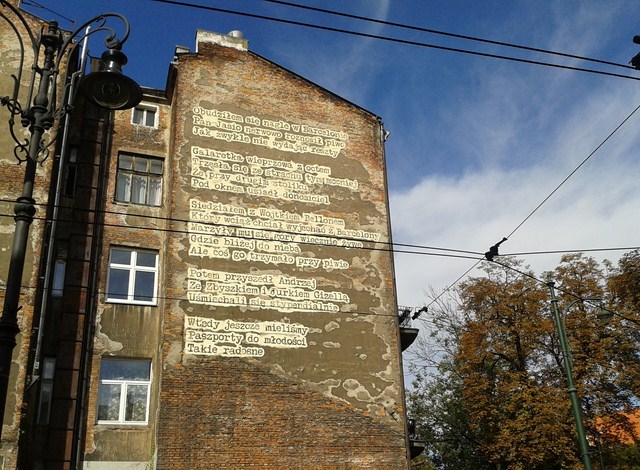 Obudziłem się nagle w Barcelonie
Pan Jasio nerwowo roznosił piwo
Jak zwykle nie wydając reszty
Galaretka wieprzowa z octem
Trzęsła się ze strachu
Że przy drugim stoliku
Pod oknem usiadł donosiciel
Siedziałem z Wojtkiem Bellonem
Który wciąż chciał wyjechać z Barcelony
Marzyły mu się góry wiecznie żywe
Gdzie bliżej do nieba
Ale coś go trzymało przy piwie
Potem przyszedł Andrzej
Ze Zbyszkiem i Jurkiem Gizellą
Uśmiechali się stypendialnie
Wtedy jeszcze mieliśmy
Paszporty do młodości
Takie radosne